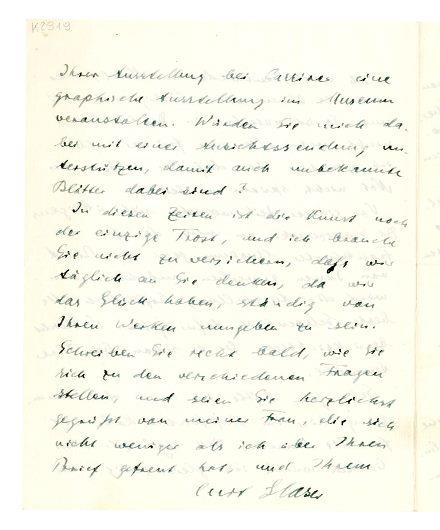 K2919
Ihrer Ausstellung bei Cassirer eine
graphische Ausstellung im Museum
veranstalten. Würden Sie mich da-
bei mit einer Ansichtssendung un-
terstützen, damit auch unbekannte
Blätter dabei sind?
In diesen Zeiten ist die Kunst noch
der einzige Trost, und ich brauche
Sie nicht zu versichern, daß wir
täglich an Sie denken, da wir
das Glück haben, ständig von
Ihren Werken umgeben zu sein.
Schreiben Sie recht bald, wie Sie
sich zu den verschiedenen Fragen
stellen, und seien Sie herzlichst
gegrüßt von meiner Frau, die sich
nicht weniger als ich über Ihren
Brief gefreut hat, und Ihrem
Curt Glaser